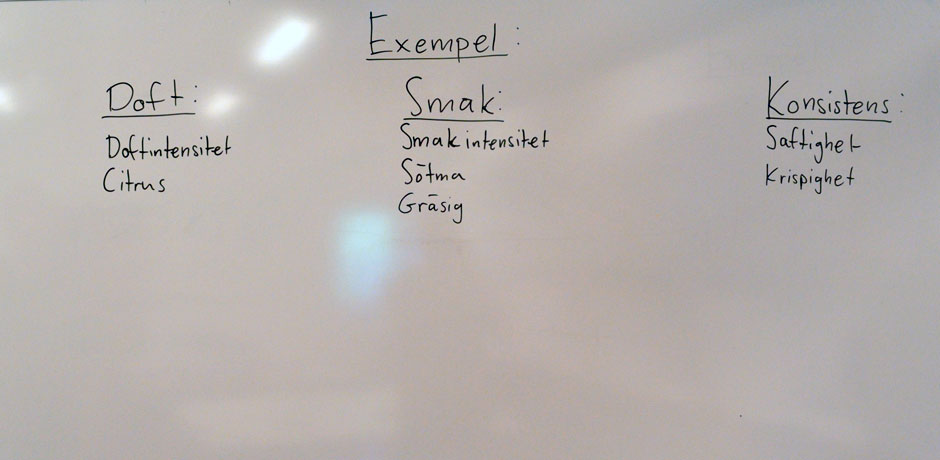 Exempel:
Doft:
Doftintensitet
Citrus
Smak:
Smakintensitet
Sötma
Gräsig
Konsistens:
Saftighet
Krispighet